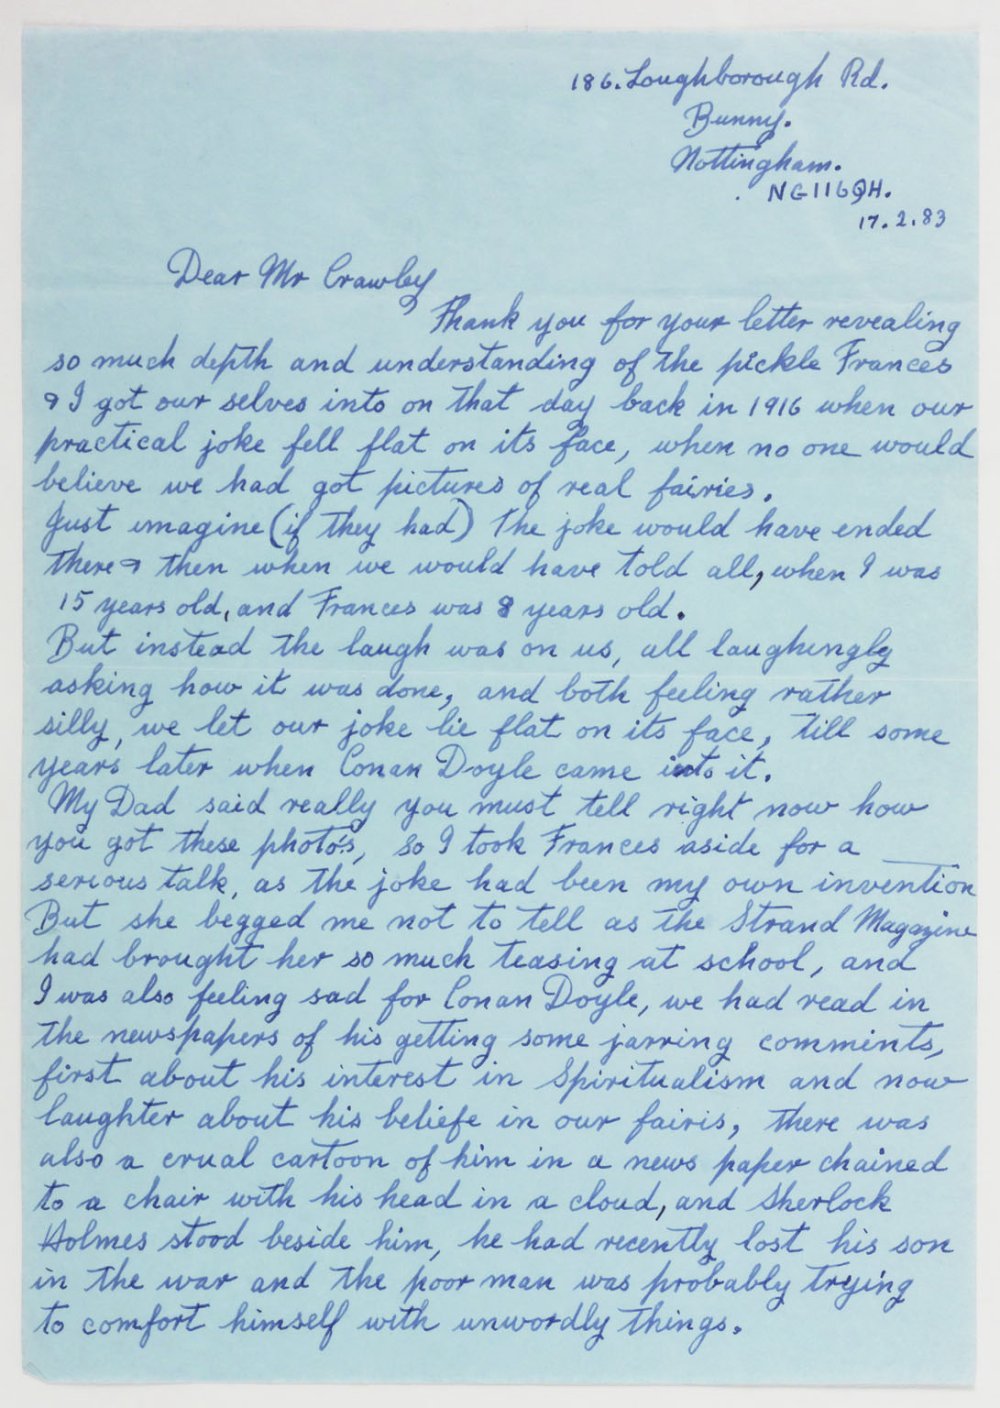 186. Loughborough Rd.
Bunny.
Nottingham.
NG116QH.
17.2.83
Dear Mr Crawley
Thank you for your letter revealing
so much depth and understanding of the pickle Frances
& I got our selves into on that day back in 1916 when our
practical joke fell flat on its face, when no one would
believe we had got pictures of real fairies.
Just imagine (if they had) the joke would have ended
there & then when we would have told all, when I was
15 years old, and Frances was 8 years old.
But instead the laugh was on us, all laughingly
asking how it was done, and both feeling rather
silly, we let our joke lie flat on its face, till some
years later when Conan Doyle came into it.
My Dad said really you must tell right now how
you got these photo's, so I took Frances aside for a
serious talk, as the joke had been my own invention
But she begged me not to tell as the Strand Magazine
had brought her so much teasing at school, and
I was also feeling sad for Conan Doyle, we had read in
the newspapers of his getting some jarring comments,
first about his interest in Spiritualism and now
laughter about his beliefe in our fairis, there was
also a crual cartoon of him in a news paper chained
to a chair with his head in a cloud, and Sherlock
Holmes stood beside him, he had recently lost his son
in the war and the poor man was probably trying
to comfort himself with unwordly things.